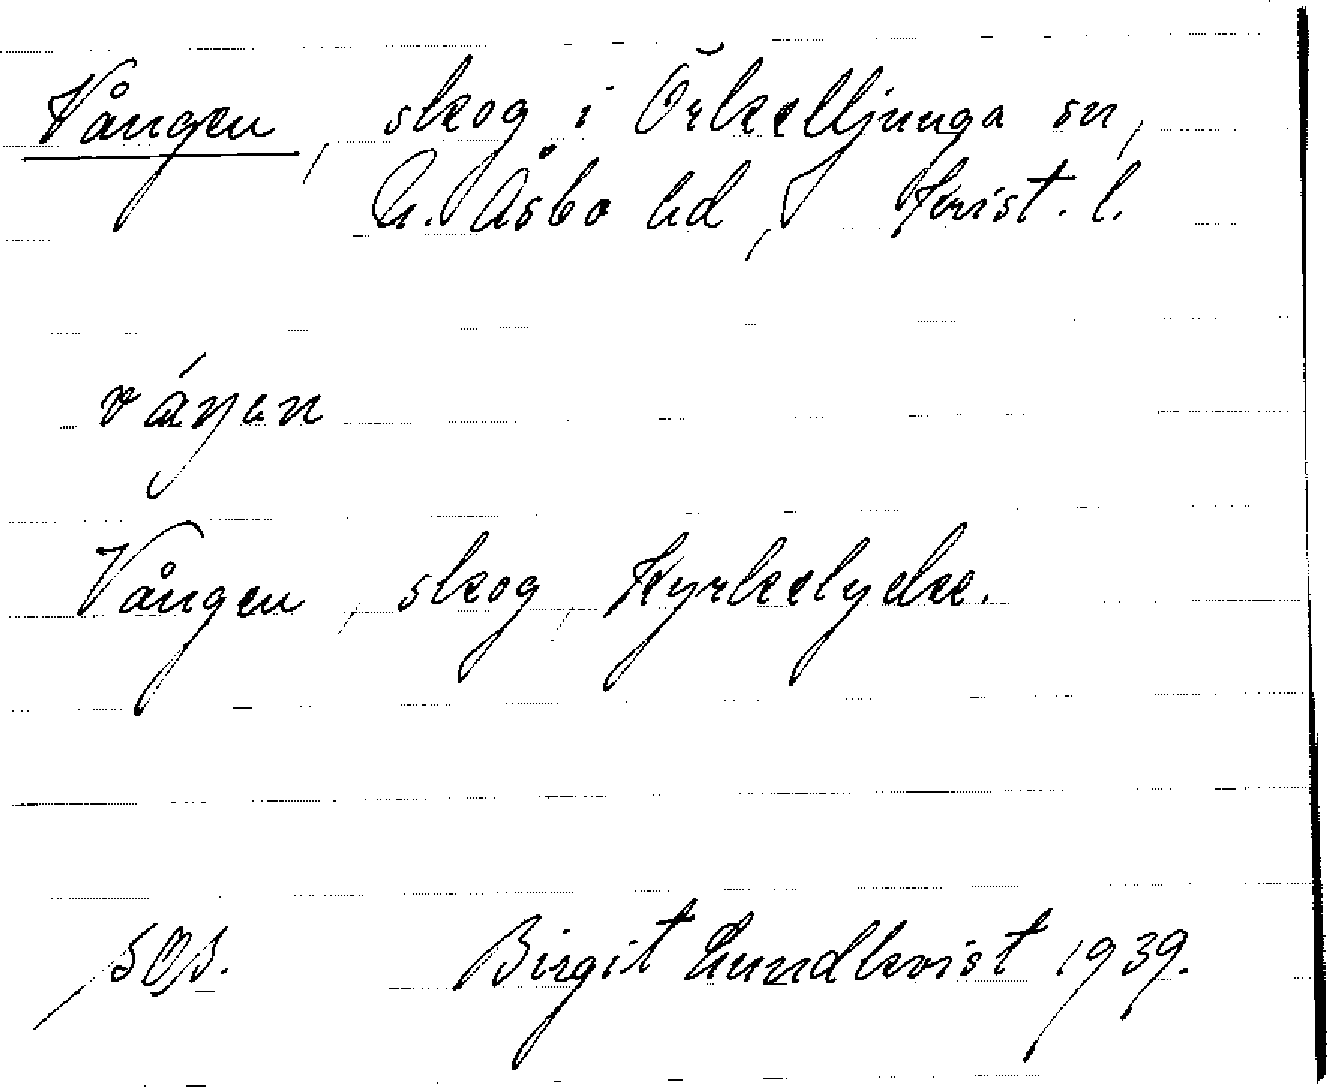 Vången, skog i Örkelljunga sn,
N. Åsbo hd, Krist. l.
váŋən
Vången, skog, Kyrkelycke.
Birgit Lundkvist 1939.